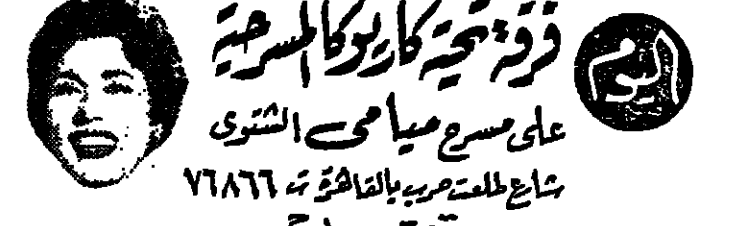 اليوم
فرقة تحية كاريوكا المسرحية
على مسرح ميامى الشتوى
شارع طلعت حرب بالقاهرة ت ٧٦٨٦٦